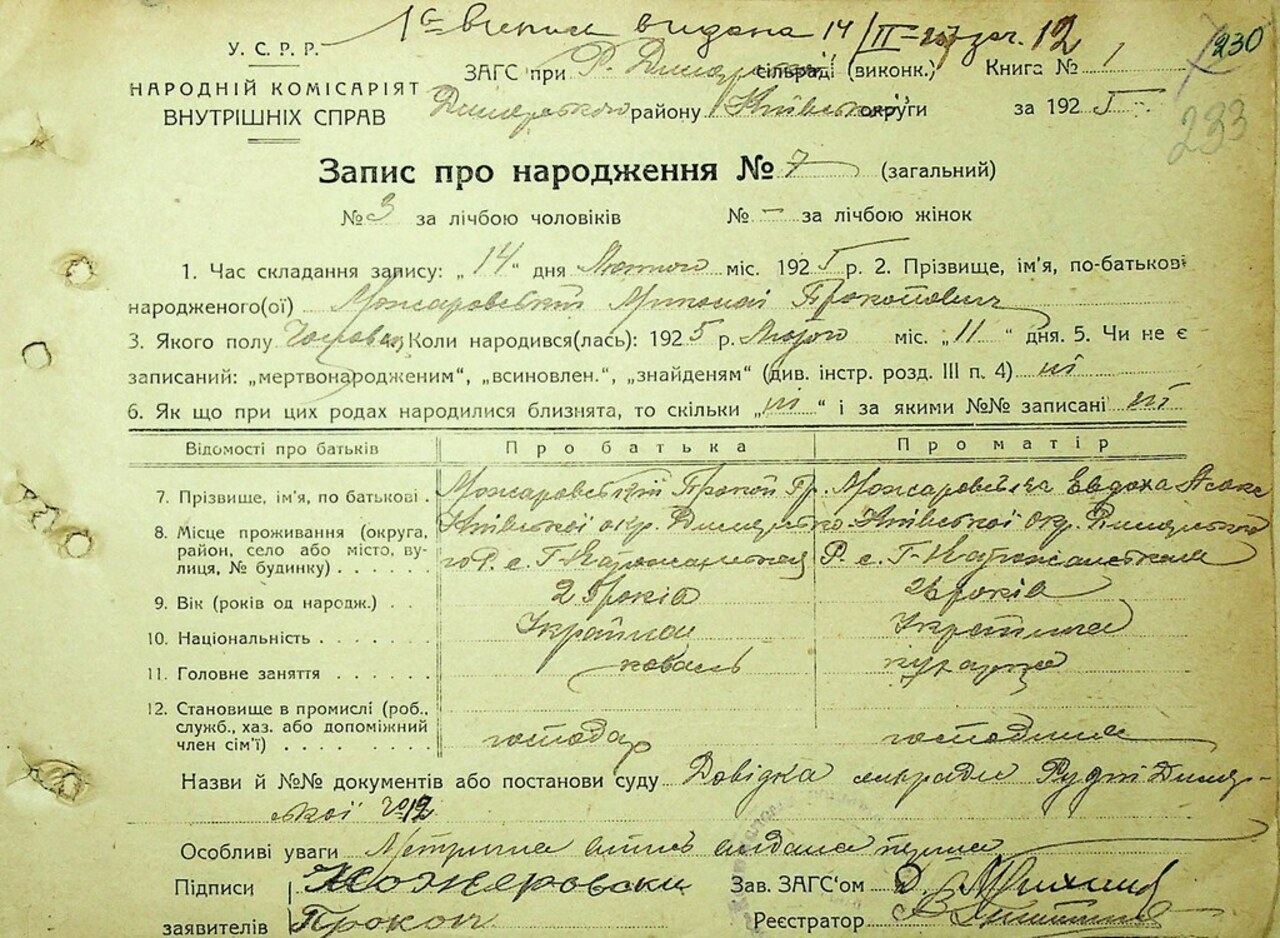 1ша виписка видана 14/II-25 р. за ч. 12
230
У. С. Р. Р.
НАРОДНІЙ КОМІСАРІЯТ
ВНУТРІШНІХ СПРАВ
ЗАГС при Р. Димерській сільраді (виконк.) Книга № 1
Димерського району Київської округи за 1925
233
Запис про народження № 7 (загальний)
№ 3 за лічбою чоловіків № — за лічбою жінок
1. Час складання запису: „14“ дня Лютого міс. 1925 р. 2. Прізвище, ім'я, по-батькові
народженого(ої) Можаровський Миколай Прокопович
3. Якого полу Чоловіч, Коли народився(лась): 1925 р. Лютого міс. „11“ дня. 5. Чи не є
записаний: „мертвонародженим“, „всиновлен.“, „знайденям“ (див. інстр. розд. III п. 4) ні
6. Як що при цих родах народилися близнята, то скільки „ні“ і за якими №№ записані ні
Відомості про батьків Про батька Про матір
7. Прізвище, ім'я, по батькові . Можаровський Прокоп Гр. Можаровська Евдоха
8. Місце проживання (округа, район, село або місто, вулиця, № будинку) . . . . . .
Київської окр. Димерсько Київської окр. Димерського
го Р. с. Г-Катюжанській Р. с. Г-Катюжанській
9. Вік (років од народж.) . . 25 років 23 років
10. Національність . . . . . . . Українець Українка
11. Головне заняття . . . . . . коваль
12. Становище в промислі (роб.,
служб., хаз. або допоміжний
член сім'ї) . . . . . . . . . господар господиня
Назви й №№ документів або постанови суду Довідка сільради Рудні Димер-
ської № 12
Особливі уваги Метрична випись видана перша
Підписи Можеровски Зав. ЗАГС'ом
заявителів Прокоп Реєстратор